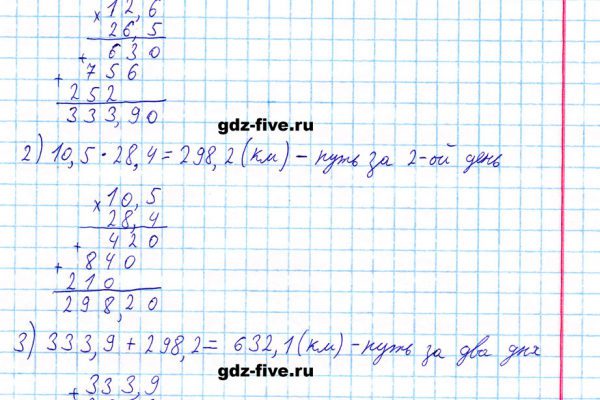 × 12,6
26,5
+ 630
+ 756
252
333,90
gdz-five.ru
2) 10,5 · 28,4 = 298,2 (км) – путь за 2-ой день
× 10,5
28,4
+ 420
+ 840
210
298,20
3) 333,9 + 298,2 = 632,1 (км) – путь за два дня
gdz-five.ru
+ 333,9